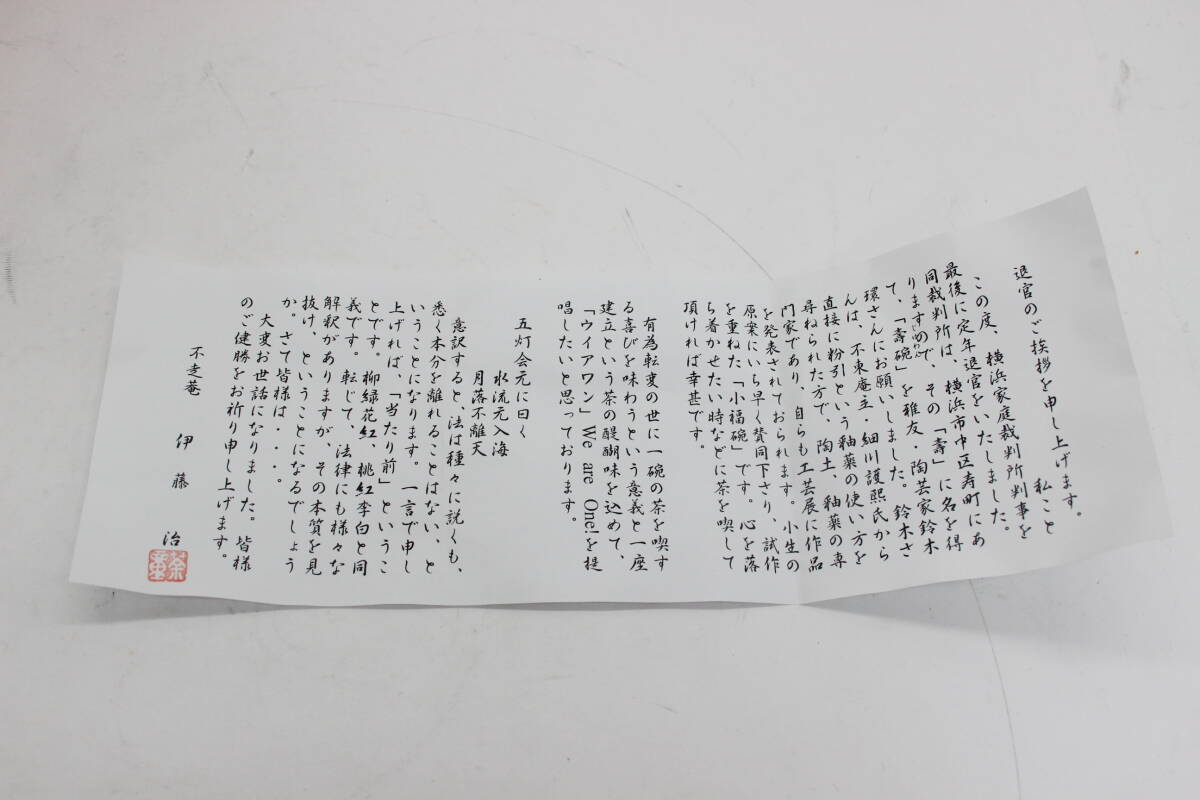 退官のご挨拶を申し上げます。
私こと
この度、横浜家庭裁判所判事を
最後に定年退官をいたしました。
同裁判所は、横浜市中区寿町にあ
りますので、その「壽」に名を得
て、「壽碗」を雅友・陶芸家鈴木
環さんにお願いしました。鈴木さ
んは、不東庵主・細川護熙氏から
直接に粉引という釉薬の使い方を
尋ねられた方で、陶土、釉薬の専
門家であり、自らも工芸展に作品
を発表されておられます。小生の
原案にいち早く賛同下さり、試作
を重ねた「小福碗」です。心を落
ち着かせたい時などに茶を喫して
頂ければ幸甚です。
有為転変の世に一碗の茶を喫す
る喜びを味わうという意義と一座
建立という茶の醍醐味を込めて、
「ウイアワン」We are One!を提
唱したいと思っております。
五灯会元に曰く
水流元入海
月落不離天
意訳すると、法は種々に説くも、
悉く本分を離れることはない、と
いうことになります。一言で申し
上げれば、「当たり前」というこ
とです。柳緑花紅、桃紅李白と同
義です。転じて、法律にも様々な
解釈がありますが、その本質を見
抜け、ということになるでしょう
か。さて皆様は・・・。
大変お世話になりました。皆様
のご健勝をお祈り申し上げます。
不走菴 伊藤 治